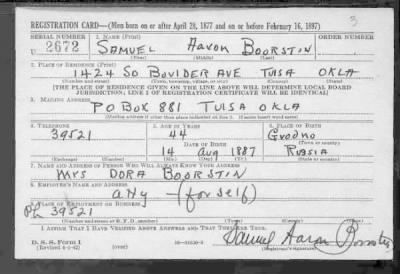 REGISTRATION CARD—(Men born on or after April 28, 1877 and on or before February 16, 1897)
SERIAL NUMBER 1. NAME (Print) ORDER NUMBER
U 2672 SAMUEL Aaron BOORSTIN
(First) (Middle) (Last)
2. PLACE OF RESIDENCE (Print)
1424 SO BOULDER AVE TULSA OKLA
(Number and street) (Town, township, village, or city) (County) (State)
[THE PLACE OF RESIDENCE GIVEN ON THE LINE ABOVE WILL DETERMINE LOCAL BOARD
JURISDICTION; LINE 2 OF REGISTRATION CERTIFICATE WILL BE IDENTICAL]
3. MAILING ADDRESS
PO BOX 881 TULSA OKLA
[Mailing address if other than place indicated on line 2. If same insert word same]
4. TELEPHONE 5. AGE IN YEARS 6. PLACE OF BIRTH
39521 44 Grodno
DATE OF BIRTH (Town or county)
14 Aug 1887 RUSSIA
(Exchange) (Number) (Mo.) (Day) (Yr.) (State or country)
7. NAME AND ADDRESS OF PERSON WHO WILL ALWAYS KNOW YOUR ADDRESS
Mrs DORA BOORSTIN
8. EMPLOYER'S NAME AND ADDRESS
atty - (for self)
9. PLACE OF EMPLOYMENT OR BUSINESS
Ph 39521
(Number and street or R. F. D. number) (Town) (County) (State)
I AFFIRM THAT I HAVE VERIFIED ABOVE ANSWERS AND THAT THEY ARE TRUE.
D. S. S. Form 1
(Revised 4-1-42) (over) Samuel Aaron Boorstin